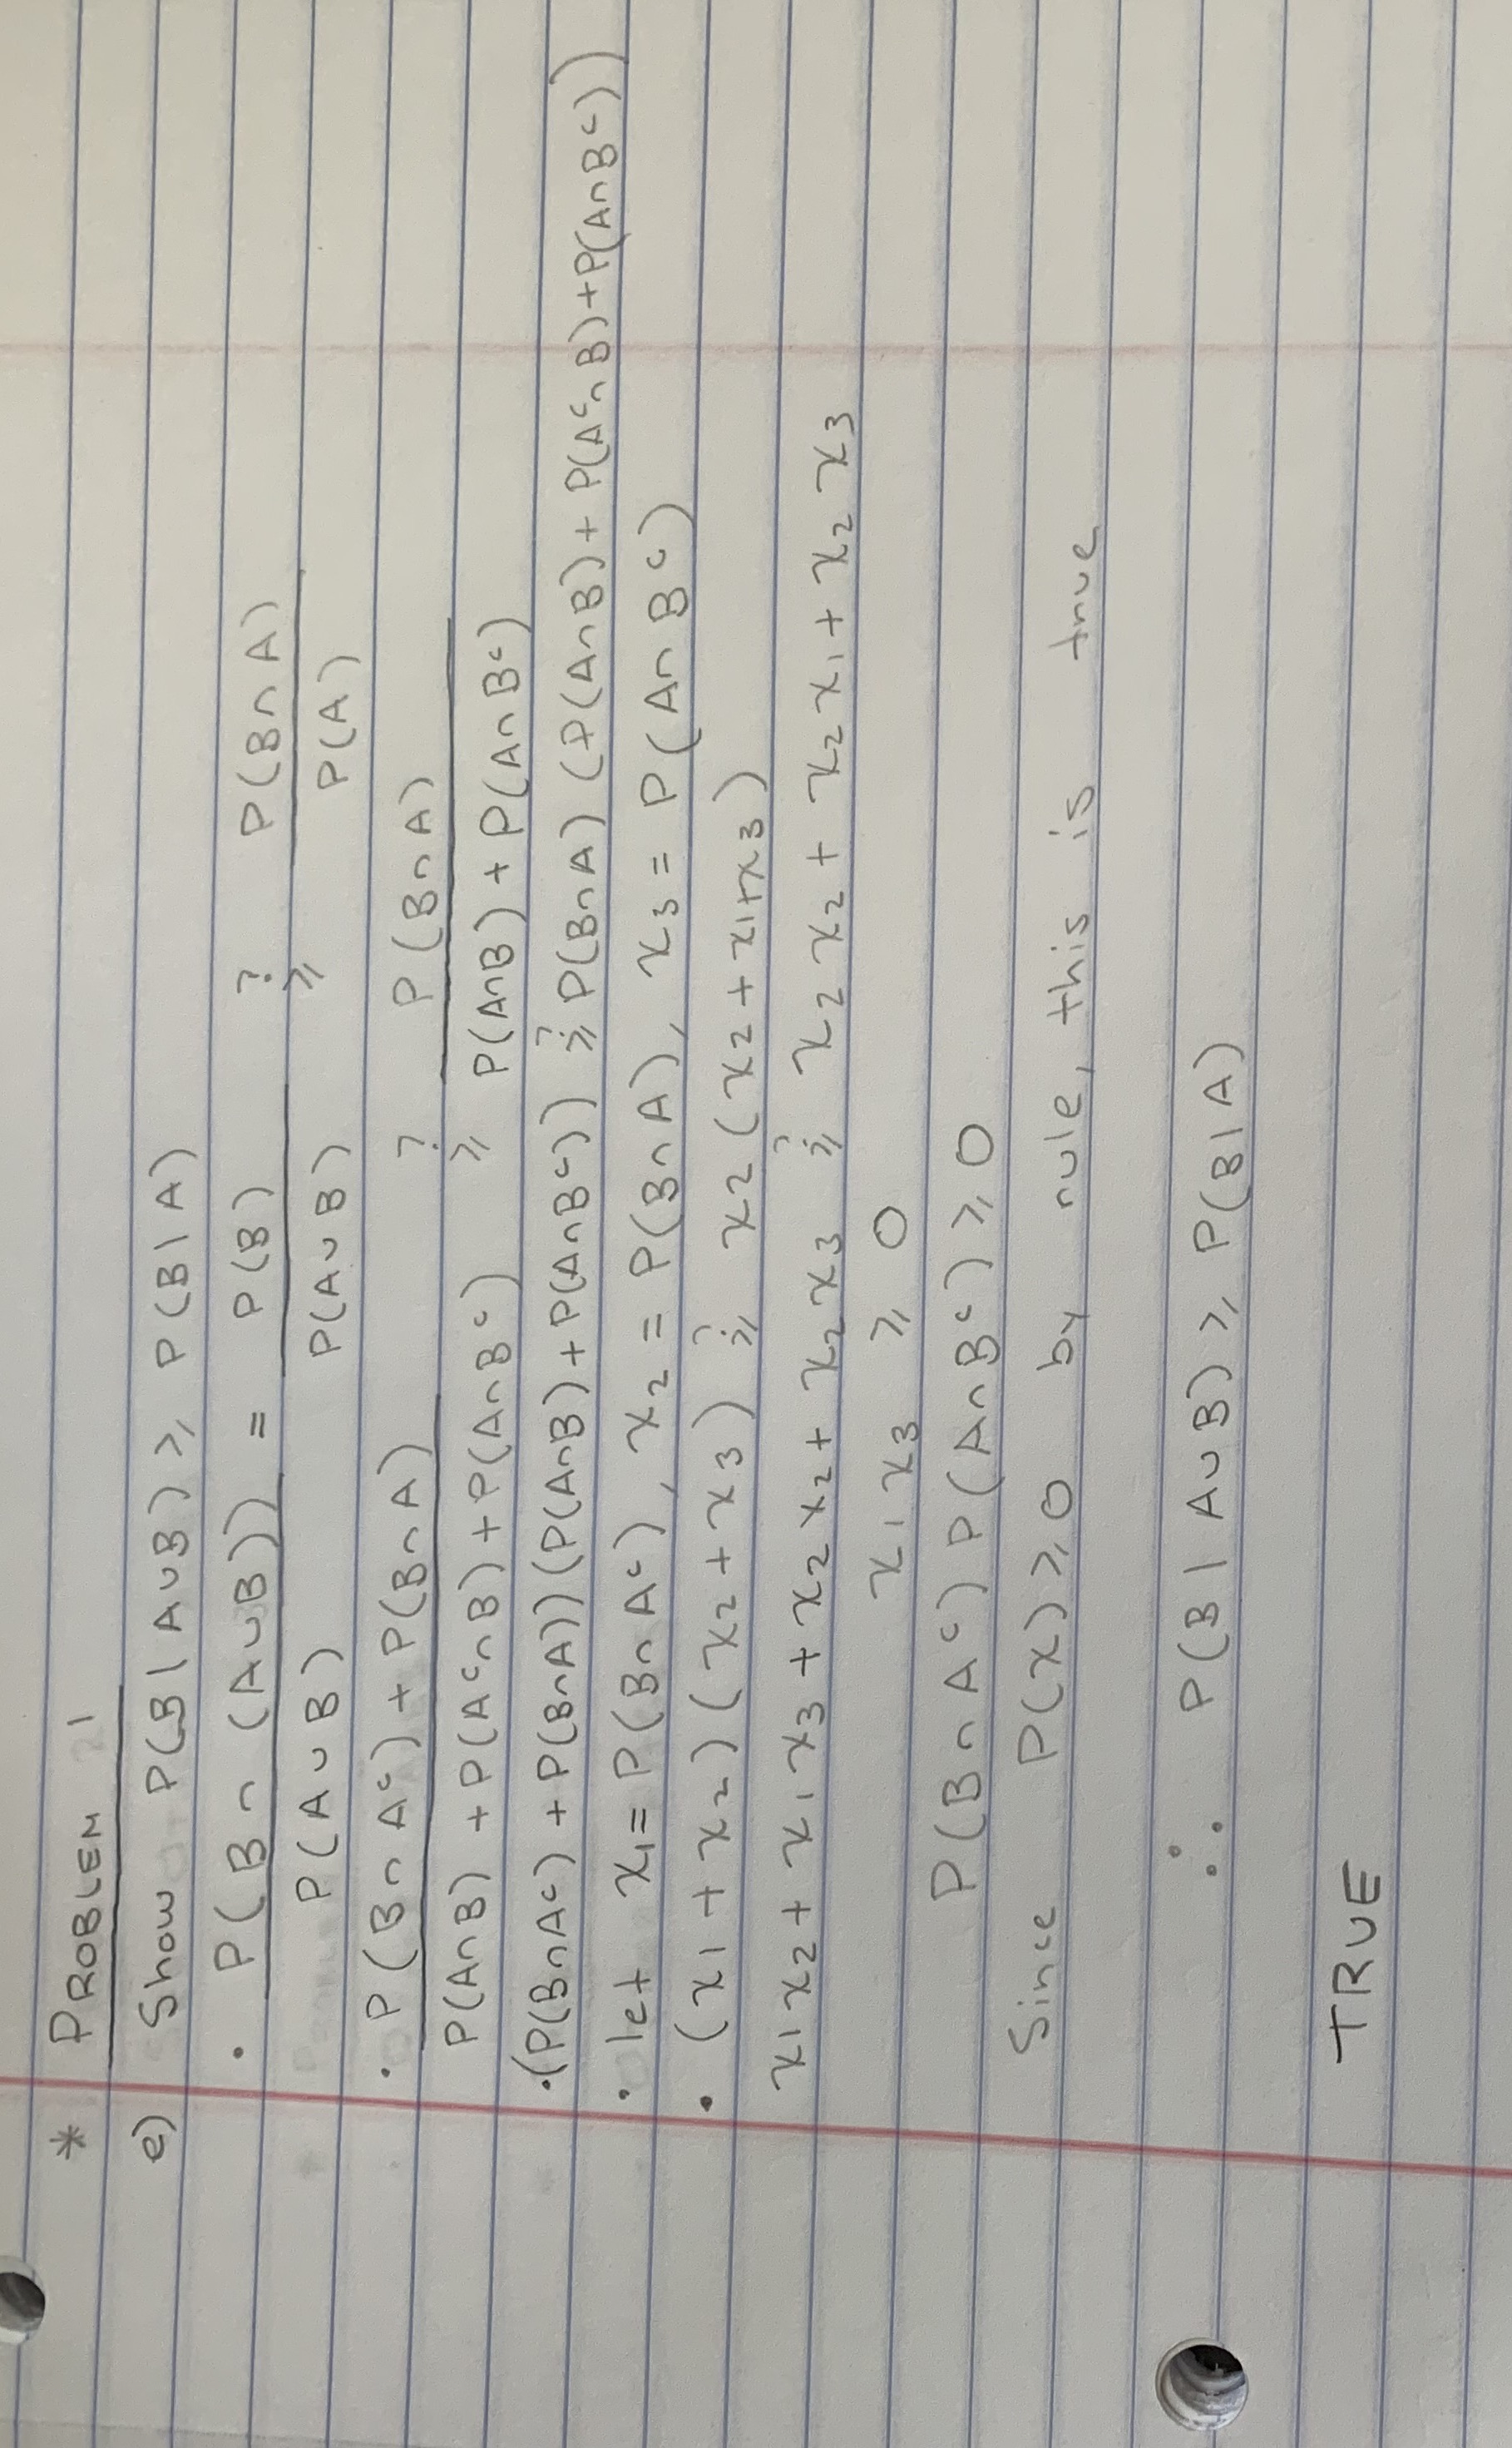 * PROBLEM 1
e) Show P(B | A∪B) ⩾ P(B | A)
• P(B ∩ (A∪B)) / P(A∪B) = P(B) / P(A∪B) ?⩾ P(B∩A) / P(A)
• P(B∩Aᶜ) + P(B∩A) / P(A∩B) + P(Aᶜ∩B) + P(A∩Bᶜ) ?⩾ P(B∩A) / P(A∩B) + P(A∩Bᶜ)
• (P(B∩Aᶜ) + P(B∩A)) (P(A∩B) + P(A∩Bᶜ)) ?⩾ P(B∩A) (P(A∩B) + P(Aᶜ∩B) + P(A∩Bᶜ))
• let x₁ = P(B∩Aᶜ), x₂ = P(B∩A), x₃ = P(A∩Bᶜ)
• (x₁ + x₂)(x₂ + x₃) ?⩾ x₂(x₂ + x₁ + x₃)
x₁x₂ + x₁x₃ + x₂x₂ + x₂x₃ ?⩾ x₂x₂ + x₂x₁ + x₂x₃
x₁x₃ ⩾ 0
P(B∩Aᶜ) P(A∩Bᶜ) ⩾ 0
Since P(x) ⩾ 0 by rule, this is true
∴ P(B | A∪B) ⩾ P(B | A)
TRUE